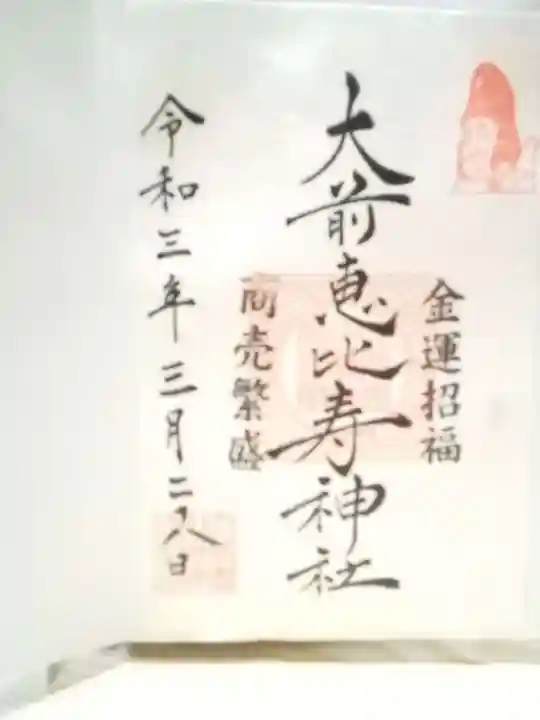 金運招福
大前恵比寿神社
商売繁盛
令和三年三月二八日